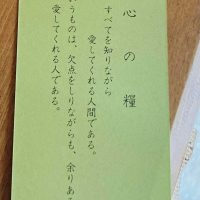 心の糧
すべてを知りながら
愛してくれる人間である。
いうものは、欠点をしりながらも、余りあ
愛してくれる人である。